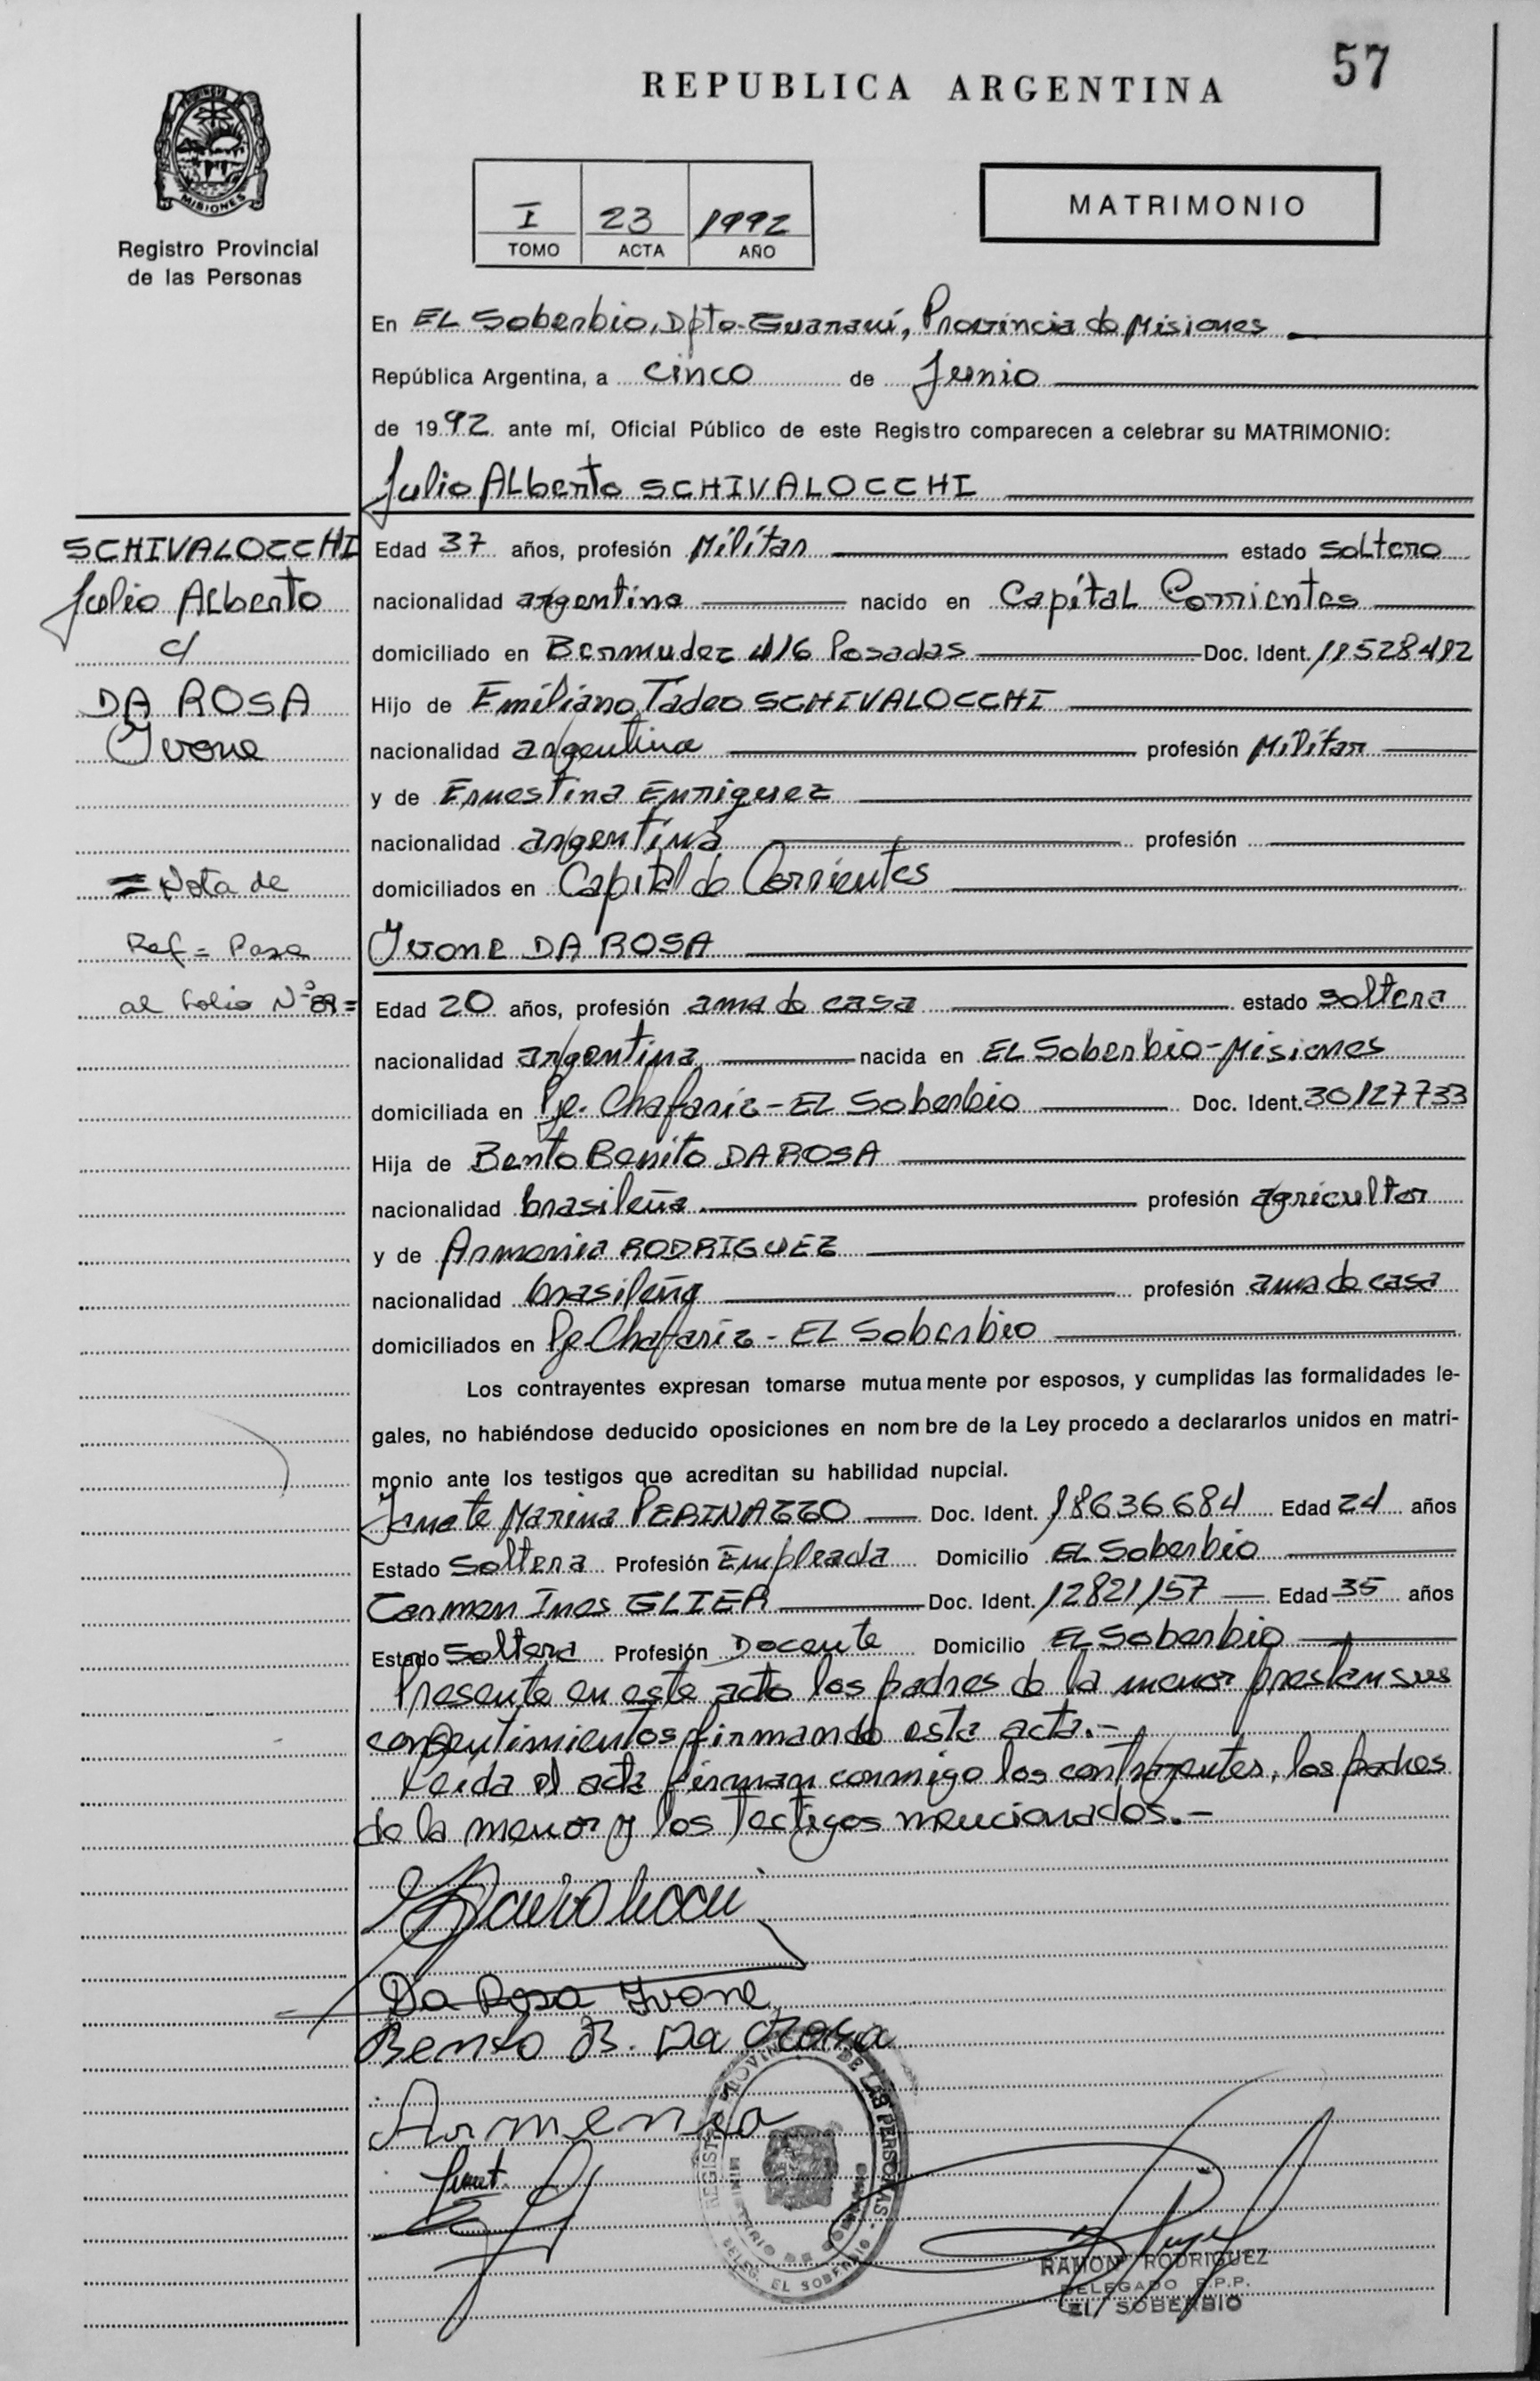 57
REPUBLICA ARGENTINA
MISIONES
Registro Provincial
de las Personas
I 23 1992
TOMO ACTA AÑO
MATRIMONIO
En EL Soberbio, Dpto-Guaraní, Provincia de Misiones
República Argentina, a cinco de Junio
de 1992 ante mí, Oficial Público de este Registro comparecen a celebrar su MATRIMONIO:
Julio Alberto SCHIVALOCCHI
SCHIVALOCCHI
Julio Alberto
c/
DA ROSA
Ivone
= Nota de
Ref = Pasa
al folio Nº 89 =
Edad 37 años, profesión Militar estado soltero
nacionalidad argentina nacido en Capital Corrientes
domiciliado en Bermudez 416 Posadas Doc. Ident. 11528482
Hijo de Emiliano Tadeo SCHIVALOCCHI
nacionalidad argentina profesión Militar
y de Ernestina Enriquez
nacionalidad argentina profesión
domiciliados en Capital de Corrientes
Ivone DA ROSA
Edad 20 años, profesión ama de casa estado soltera
nacionalidad argentina nacida en EL Soberbio-Misiones
domiciliada en Pje. Chafariz - EL Soberbio Doc. Ident. 30127733
Hija de Bento Benito DA ROSA
nacionalidad brasileña profesión agricultor
y de Armenia RODRIGUEZ
nacionalidad brasileña profesión ama de casa
domiciliados en Pje Chafariz - EL Soberbio
Los contrayentes expresan tomarse mutuamente por esposos, y cumplidas las formalidades le-
gales, no habiéndose deducido oposiciones en nombre de la Ley procedo a declararlos unidos en matri-
monio ante los testigos que acreditan su habilidad nupcial.
Janete Marina PERINAZZO Doc. Ident. 18636684 Edad 24 años
Estado Soltera Profesión Empleada Domicilio EL Soberbio
Carmen Ines GLIER Doc. Ident. 12821157 Edad 35 años
Estado Soltera Profesión Docente Domicilio EL Soberbio
Presente en este acto los padres de la menor prestan sus
consentimientos firmando esta acta.-
Leída el acta firman conmigo los contrayentes, los padres
de la menor y los Testigos mencionados.-
Da Rosa Ivone
Bento B. Da Rosa
Armenia
REGISTRO PROVINCIAL DE LAS PERSONAS
MINISTERIO DE GOBIERNO
DELEG. EL SOBERBIO
RAMON RODRIGUEZ
DELEGADO R.P.P.
EL SOBERBIO